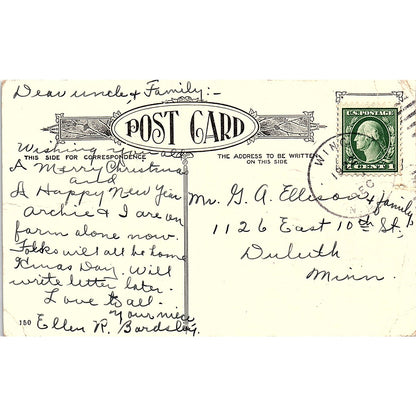 Dear uncle & Family:-
POST CARD
THIS SIDE FOR CORRESPONDENCE
THE ADDRESS TO BE WRITTEN
ON THIS SIDE
U.S. POSTAGE
CENT
DEC
Wishing you all
A Merry Christmas
and
A Happy New Year
Archie & I are on
farm alone now.
Folks will all be home
Xmas Day. Will
write letter later.
Love to all.
your niece
Ellen R. Bardsley.
Mr. G. A. Ellison & family
1126 East 10th St,
Duluth
Minn.
150